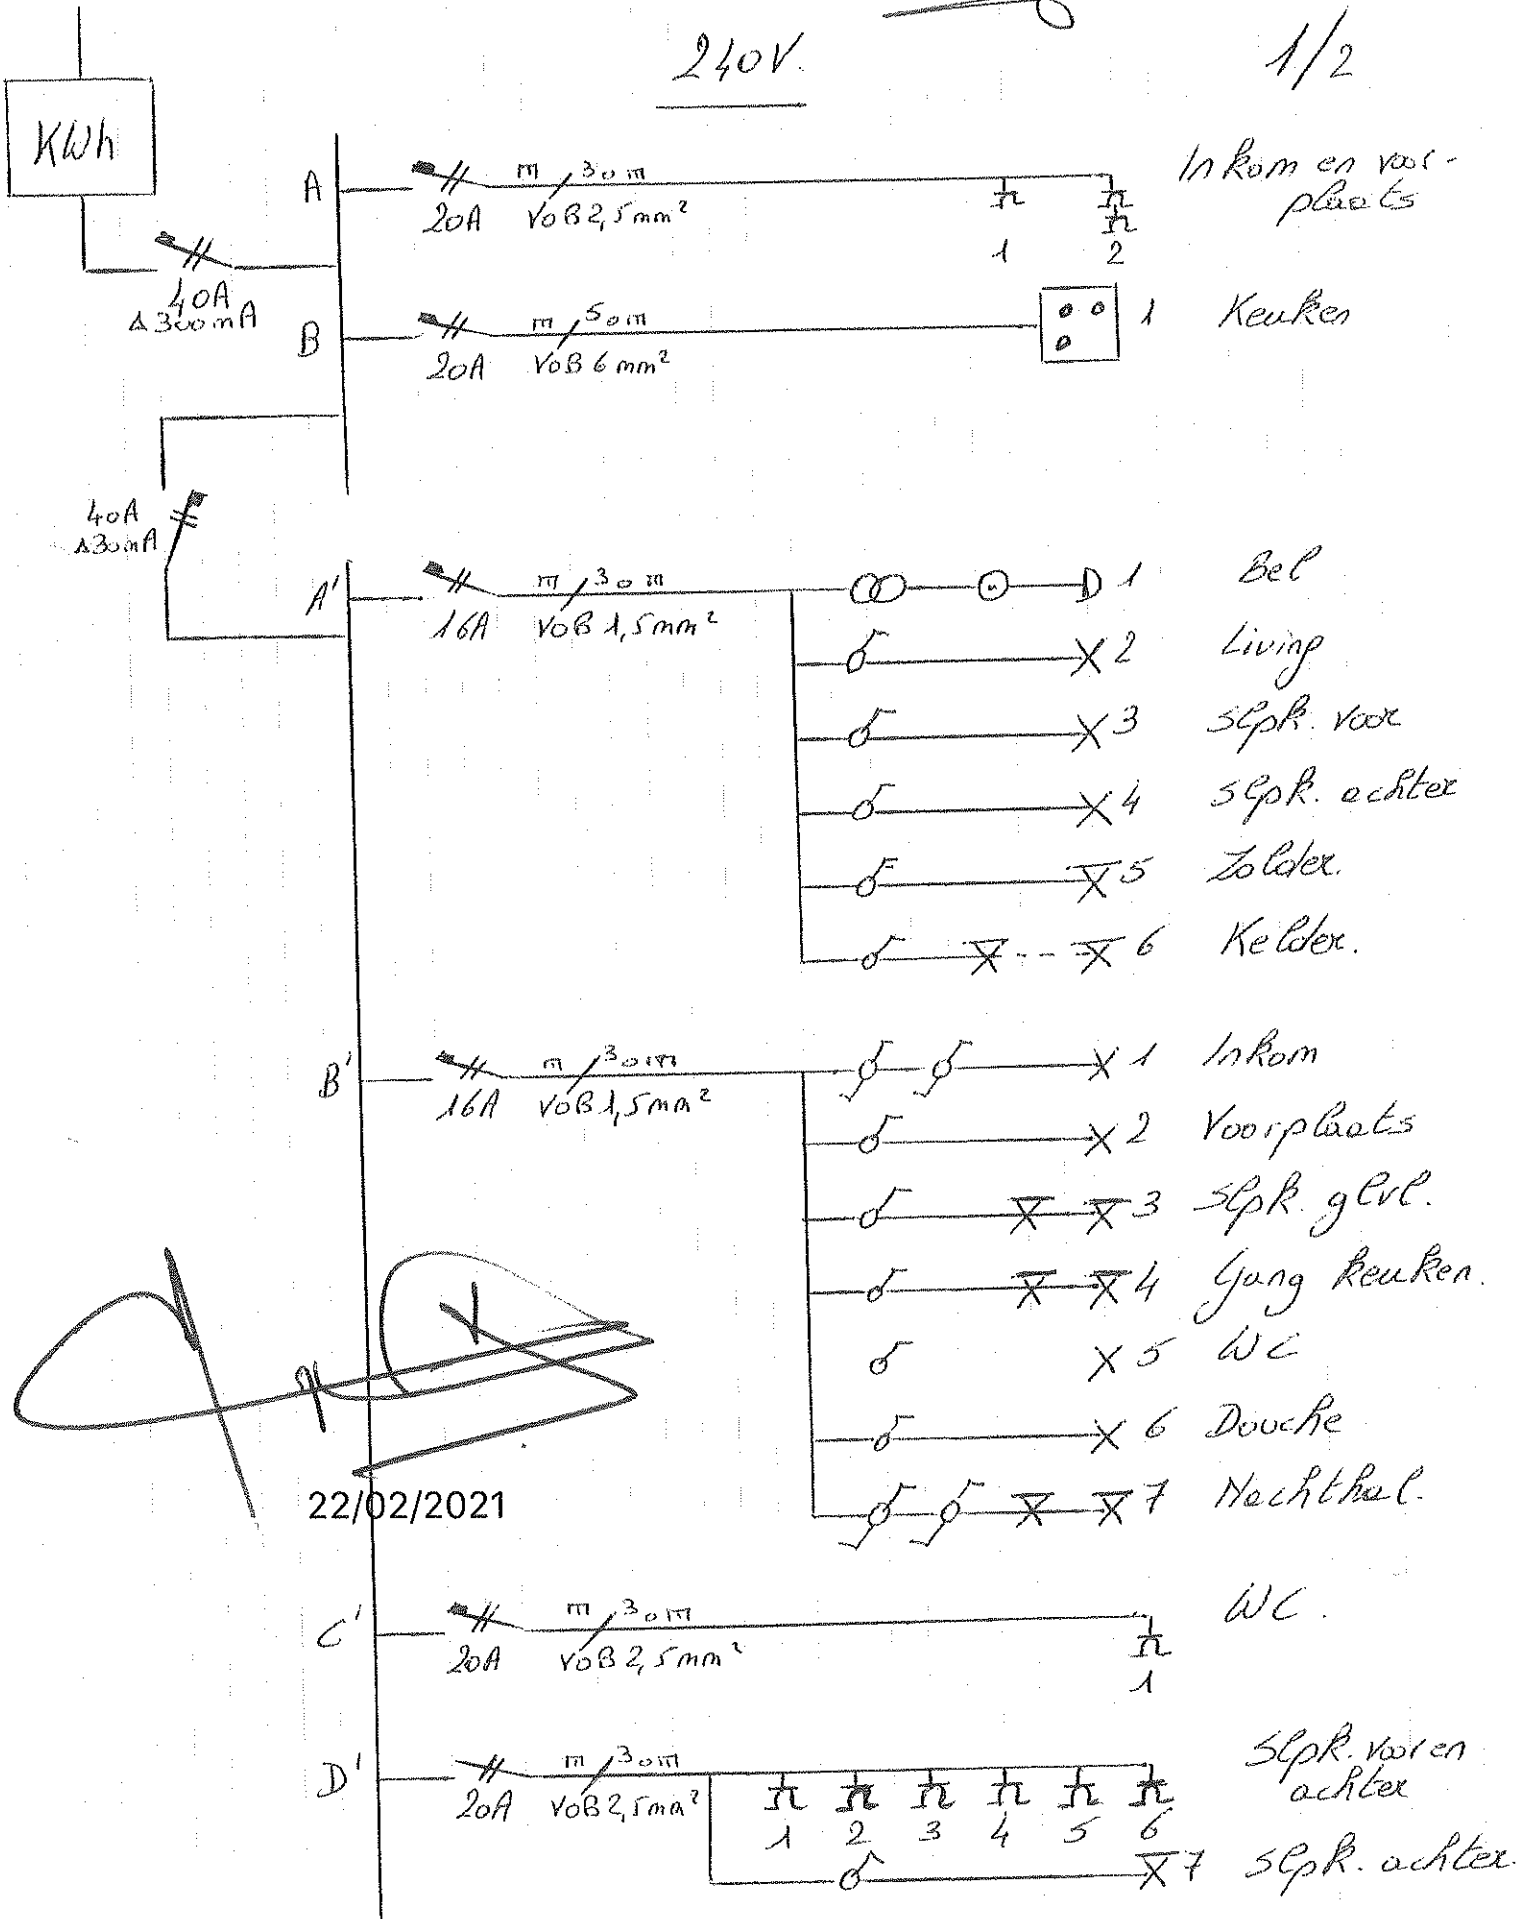 240V.
1/2
KWh
40A
Δ300mA
A
20A
m / 3om
VOB 2,5mm²
1
2
Inkom en voor-
plaats
B
20A
m / 5om
VOB 6mm²
1
Keuken
40A
Δ30mA
A'
16A
m / 3om
VOB 1,5mm²
1 Bel
2 Living
3 Slpk. voor
4 Slpk. achter
5 Zolder.
6 Kelder.
B'
16A
m / 3om
VOB 1,5mm²
1 Inkom
2 Voorplaats
3 Slpk. glvl.
4 Gang keuken.
5 WC
6 Douche
7 Nachthal.
22/02/2021
C'
20A
m / 3om
VOB 2,5mm²
1
WC.
D'
20A
m / 3om
VOB 2,5mm²
1 2 3 4 5 6
Slpk. voor en
achter
7 Slpk. achter.